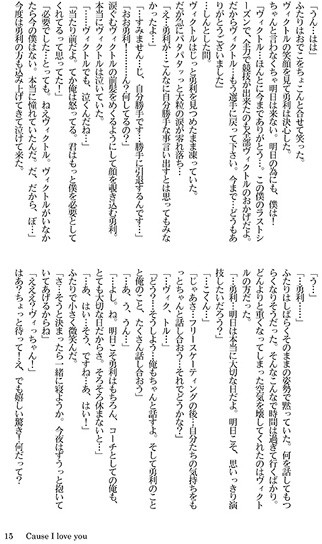 「うん…はは」
ふたりはおでこをちょこんと合せて笑った。
ヴィクトルの笑顔を見て勇利は決心した。
ちゃんと言わなくちゃ明日は来ない。明日の為にも、僕は！
「ヴィクトル…ほんとに今までありがとう…。この僕のラストシ
ーズンで、全力で競技が出来たのも全部ヴィクトルのおかげだよ。
だからヴィクトル…もう選手に戻って下さい。今まで…どうもあ
りがとうございました」
…しんとした間。
ヴィクトルはじっと勇利を見つめたまま凍っていた。
だが急にパタパタッっと大粒の涙が零れ落ち…
「え…勇利が…こんなに自分勝手な事言い出すとは思ってもみな
かったよ…」
「…すみませんっ、じ、自分勝手です…勝手に引退するんです…」
「おお勇利…………ん？何してるの？」
涙するヴィクトルの前髪をめくるようにして顔を覗き込む勇利。
本当にヴィクトルは泣いていた。
「……ヴィクトルでも、泣くんだね…」
「当たり前だよ。てか俺は怒ってる。君はもっと僕を必要として
くれてるって思ってた！」
「必要でした…とっても。ねえヴィクトル。ヴィクトルがいなか
ったら今の僕はない。本当に憧れていたんだ。だ、だから、ぼ…」
今度は勇利の方も込み上げてきて泣けて来た。
「う…」
「勇利……」
ふたりはしばらくそのままの姿勢で黙っていた。何を話してもつ
らくなりそうだった。そんなこんなで時間は過ぎて行くばかり。
どんよりと重くなってしまった空気を壊してくれたのはヴィクト
ルの方だった。
「…勇利…明日は本当に大切な日だよ。明日こそ、思いっきり演
技したいだろう？」
「…こくん…」
「じゃあさ…フリースケーティングの後…自分たちの気持ちをも
っとちゃんと話し合おう…それでどうかな？」
「…ヴィク、トル…」
「どう？…そうしよう…俺もちゃんと話すよ。そして勇利のこと
と俺のこと、たくさん話し合おう」
「…あ、う、うん…」
「…よし。ね。明日こそ勇利はもちろん、コーチとしての俺も、
とても大切な日だからさ。そろそろ休まないと…」
「…あ、はい…そう、ですね…あ、はい！」
ふたりで小さく微笑んだ。
「さ…そうと決まったら一緒に寝ようか。今夜はずうっと抱いて
いてあげるからね」
「えええ？ヴィっちゃん！」
はあ？ちょっと待って！え、でも嬉しい驚き！何だって？
15 Cause I love you